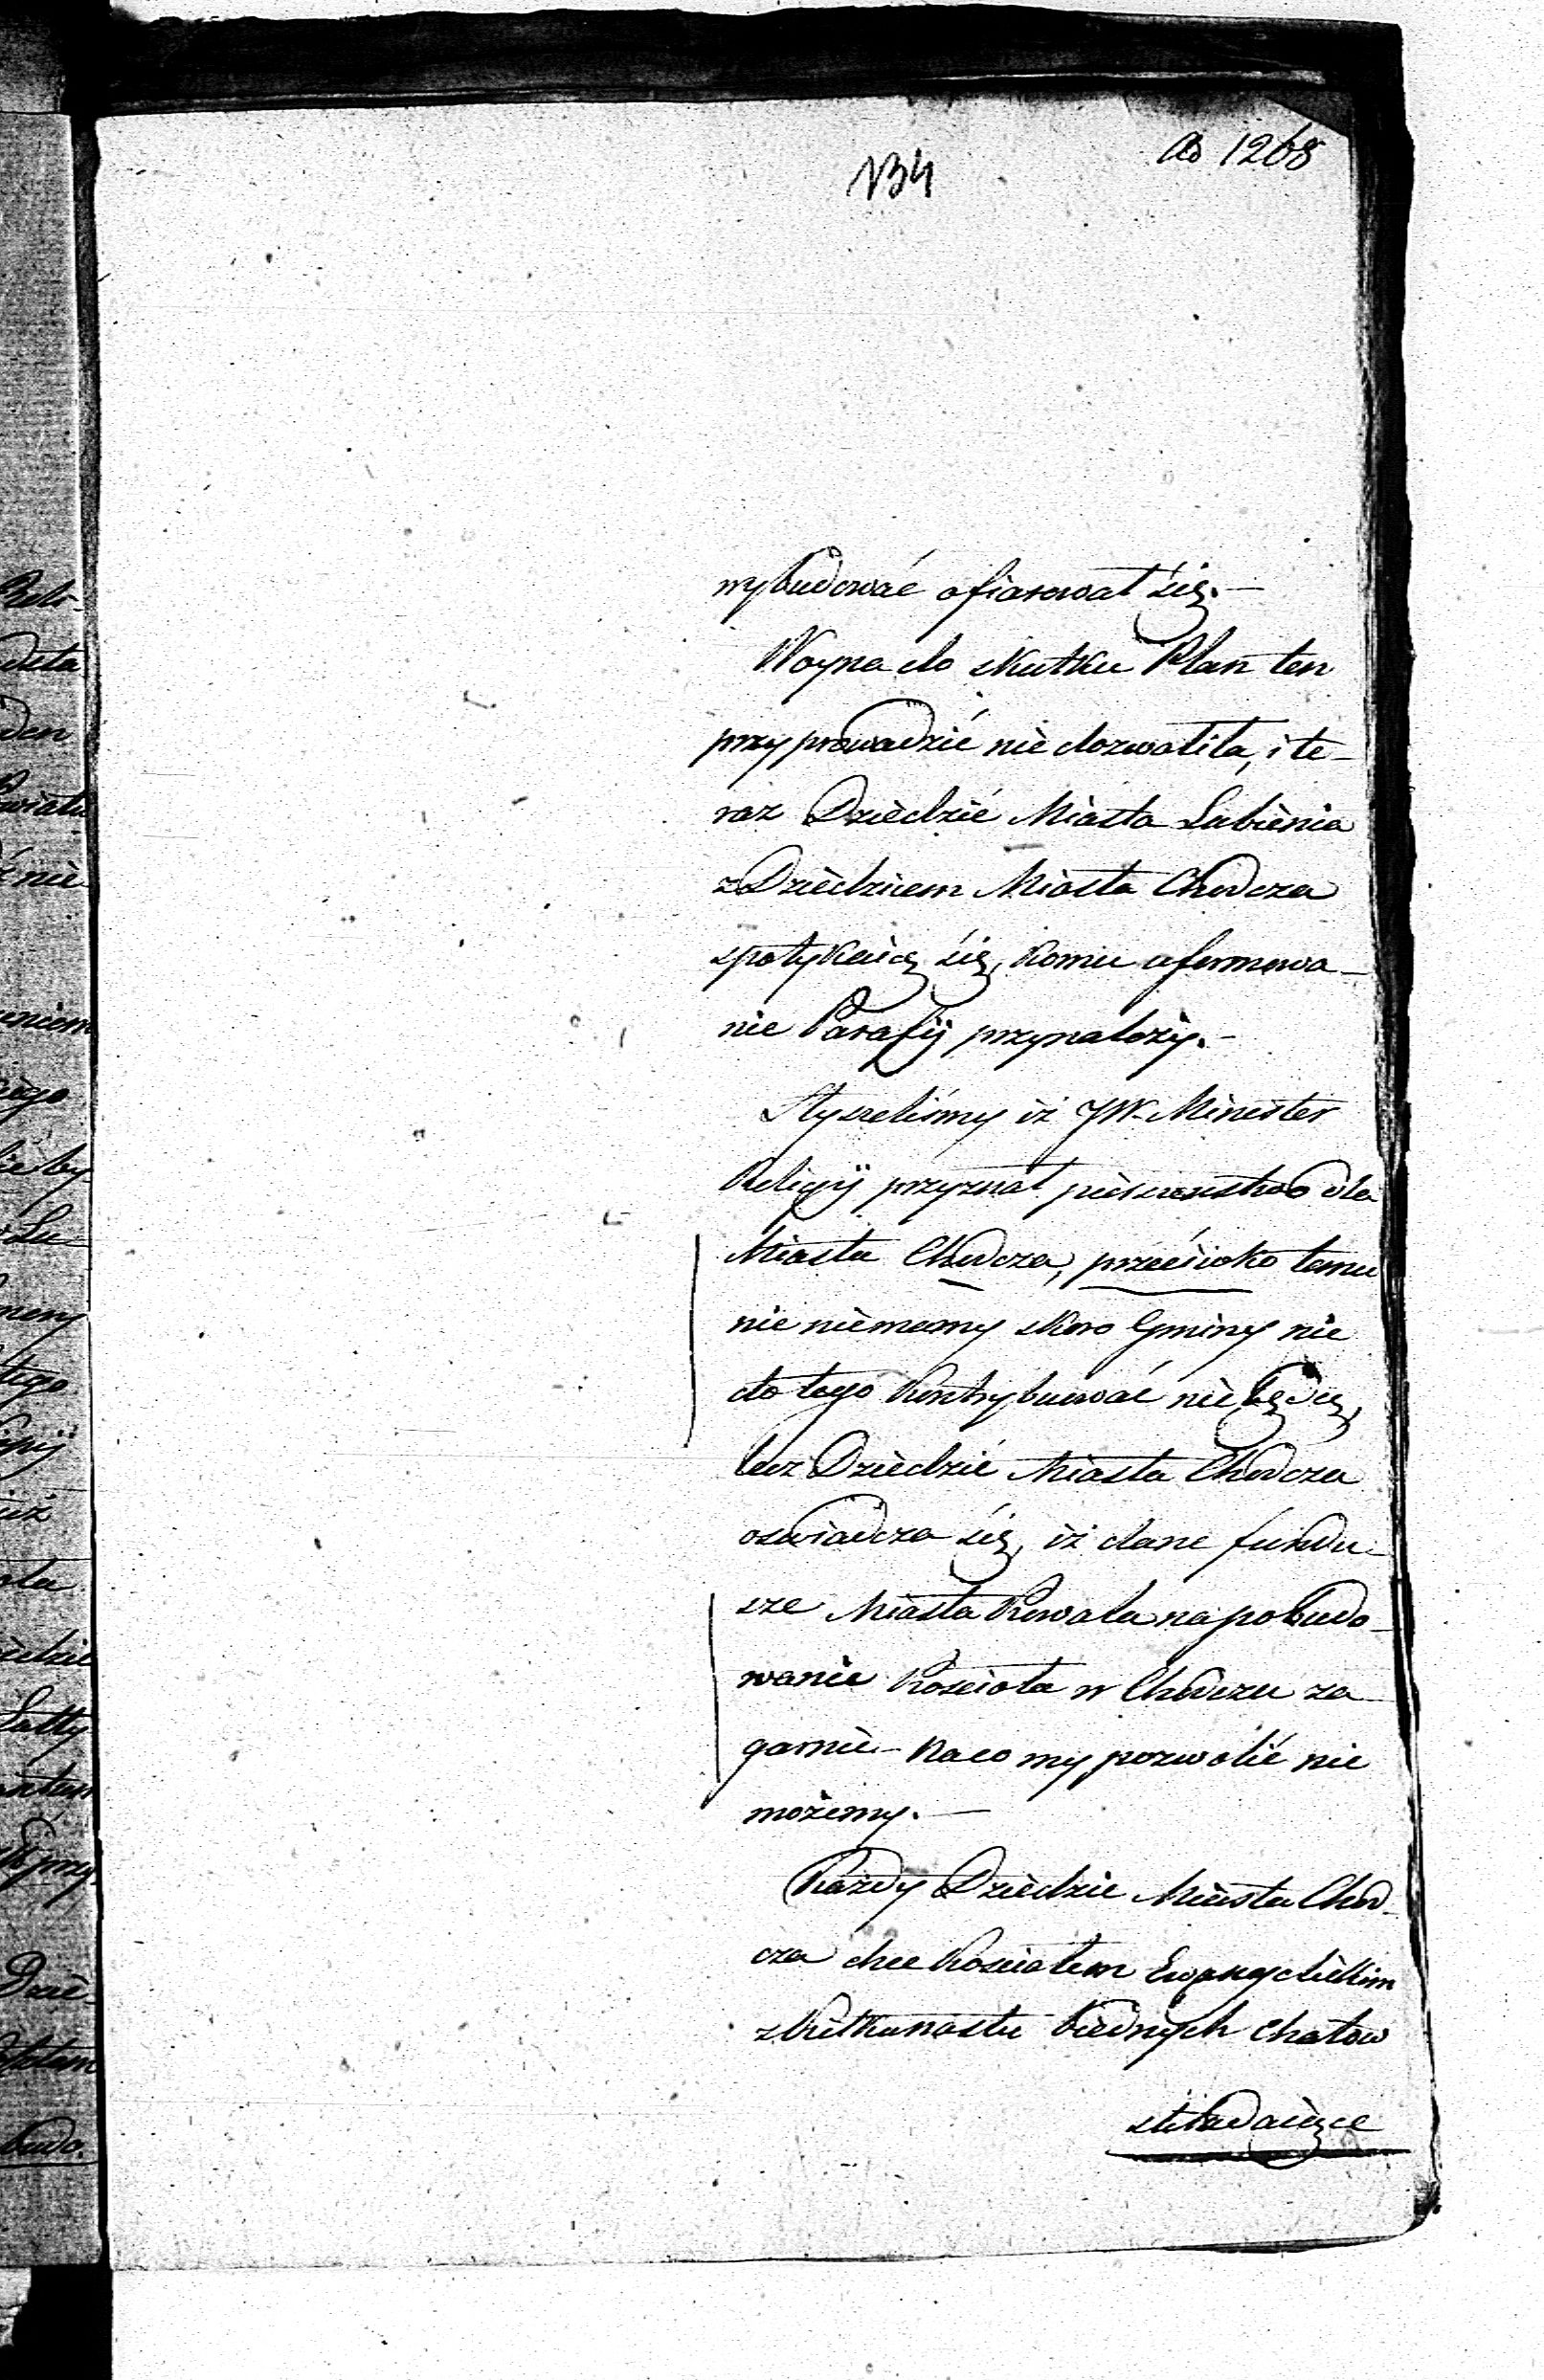 134
Ad 1268
wybudować ofiarował się.—
Woyna do skutku Plan ten
przyprowadzić nie dozwoliła, i te-
raz Dziedzić Miasta Lubienia
z Dziedzicem Miasta Chodcza
spotykaią się, komu uformowa-
nie Parafij przynależy.—
Słyszeliśmy iż JW. Minister
Religij przyznał pierszenstwo dla
Miasta Chodcza, przeciwko temu
nic niemamy skoro Gminy nic
do tego kontrybuować nie będą,
lecz Dziedzić Miasta Chodcza
oswiadcza się, iż dane fundu-
sze Miasta Kowala na pobudo-
wanie Kościoła w Chodczu za-
garnie – na co my pozwolić nie
możemy.—
Każdy Dziedzic Miasta Chod-
cza chce Kosciołem Ewangelickim
z kilkunastu biednych chałow
składaiące
Dzie-
budo.